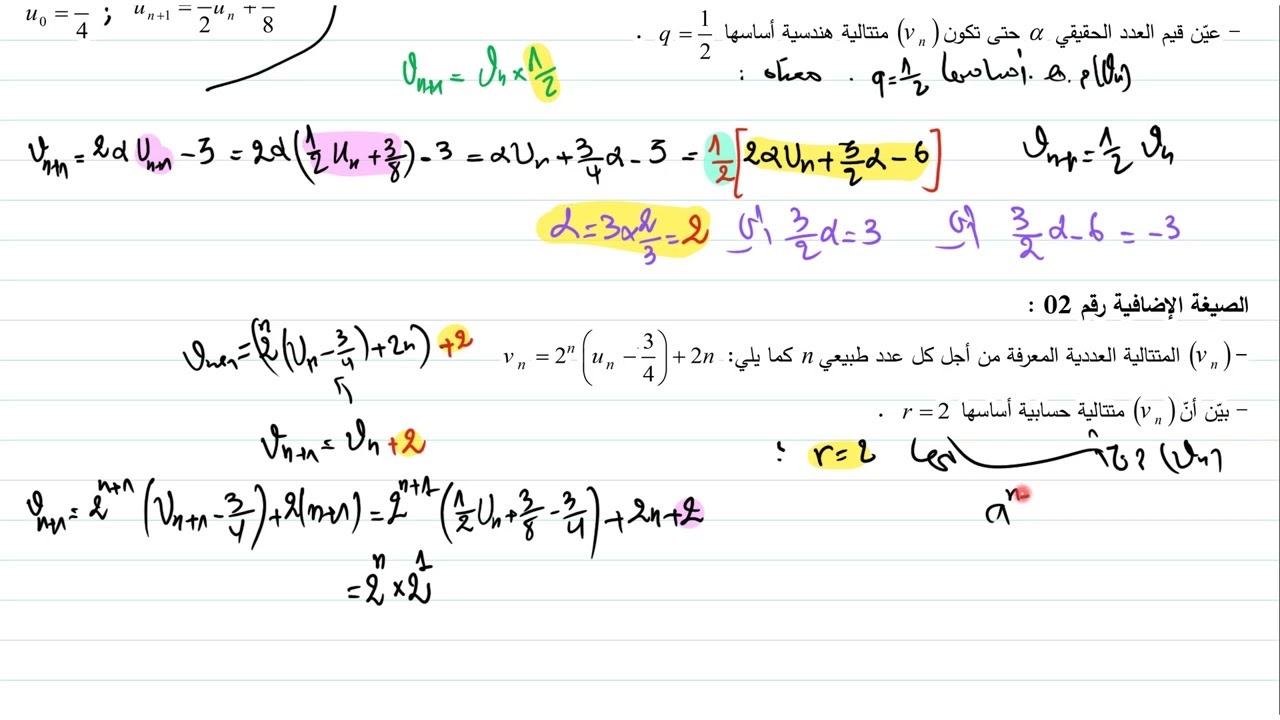 u_0 = /4 ; u_{n+1} = /2 u_n + /8
– عيّن قيم العدد الحقيقي α حتى تكون (v_n) متتالية هندسية أساسها q = 1/2 .
ϑ_{n+1} = ϑ_n × 1/2
(ϑ_n) م.ه. أساسها q = 1/2 . معناه :
ϑ_{n+1} = 2α U_{n+1} - 3 = 2α(1/2 U_n + 3/8) - 3 = αU_n + 3/4 α - 3 = 1/2 [2αU_n + 3/2 α - 6]
ϑ_{n+1} = 1/2 ϑ_n
3/2 α - 6 = -3 أي 3/2 α = 3 أي α = 3 × 2/3 = 2
الصيغة الإضافية رقم 02 :
– (v_n) المتتالية العددية المعرفة من أجل كل عدد طبيعي n كما يلي: v_n = 2^n (u_n - 3/4) + 2n
ϑ_{n+1} = (2^n (U_n - 3/4) + 2n) + 2
– بيّن أنّ (v_n) متتالية حسابية أساسها r = 2 .
ϑ_{n+1} = ϑ_n + 2
(ϑ_n) r = 2 :
ϑ_{n+1} = 2^{n+1} (U_{n+1} - 3/4) + 2(n+1) = 2^{n+1} (1/2 U_n + 3/8 - 3/4) + 2n + 2
a^n
= 2^n × 2^1